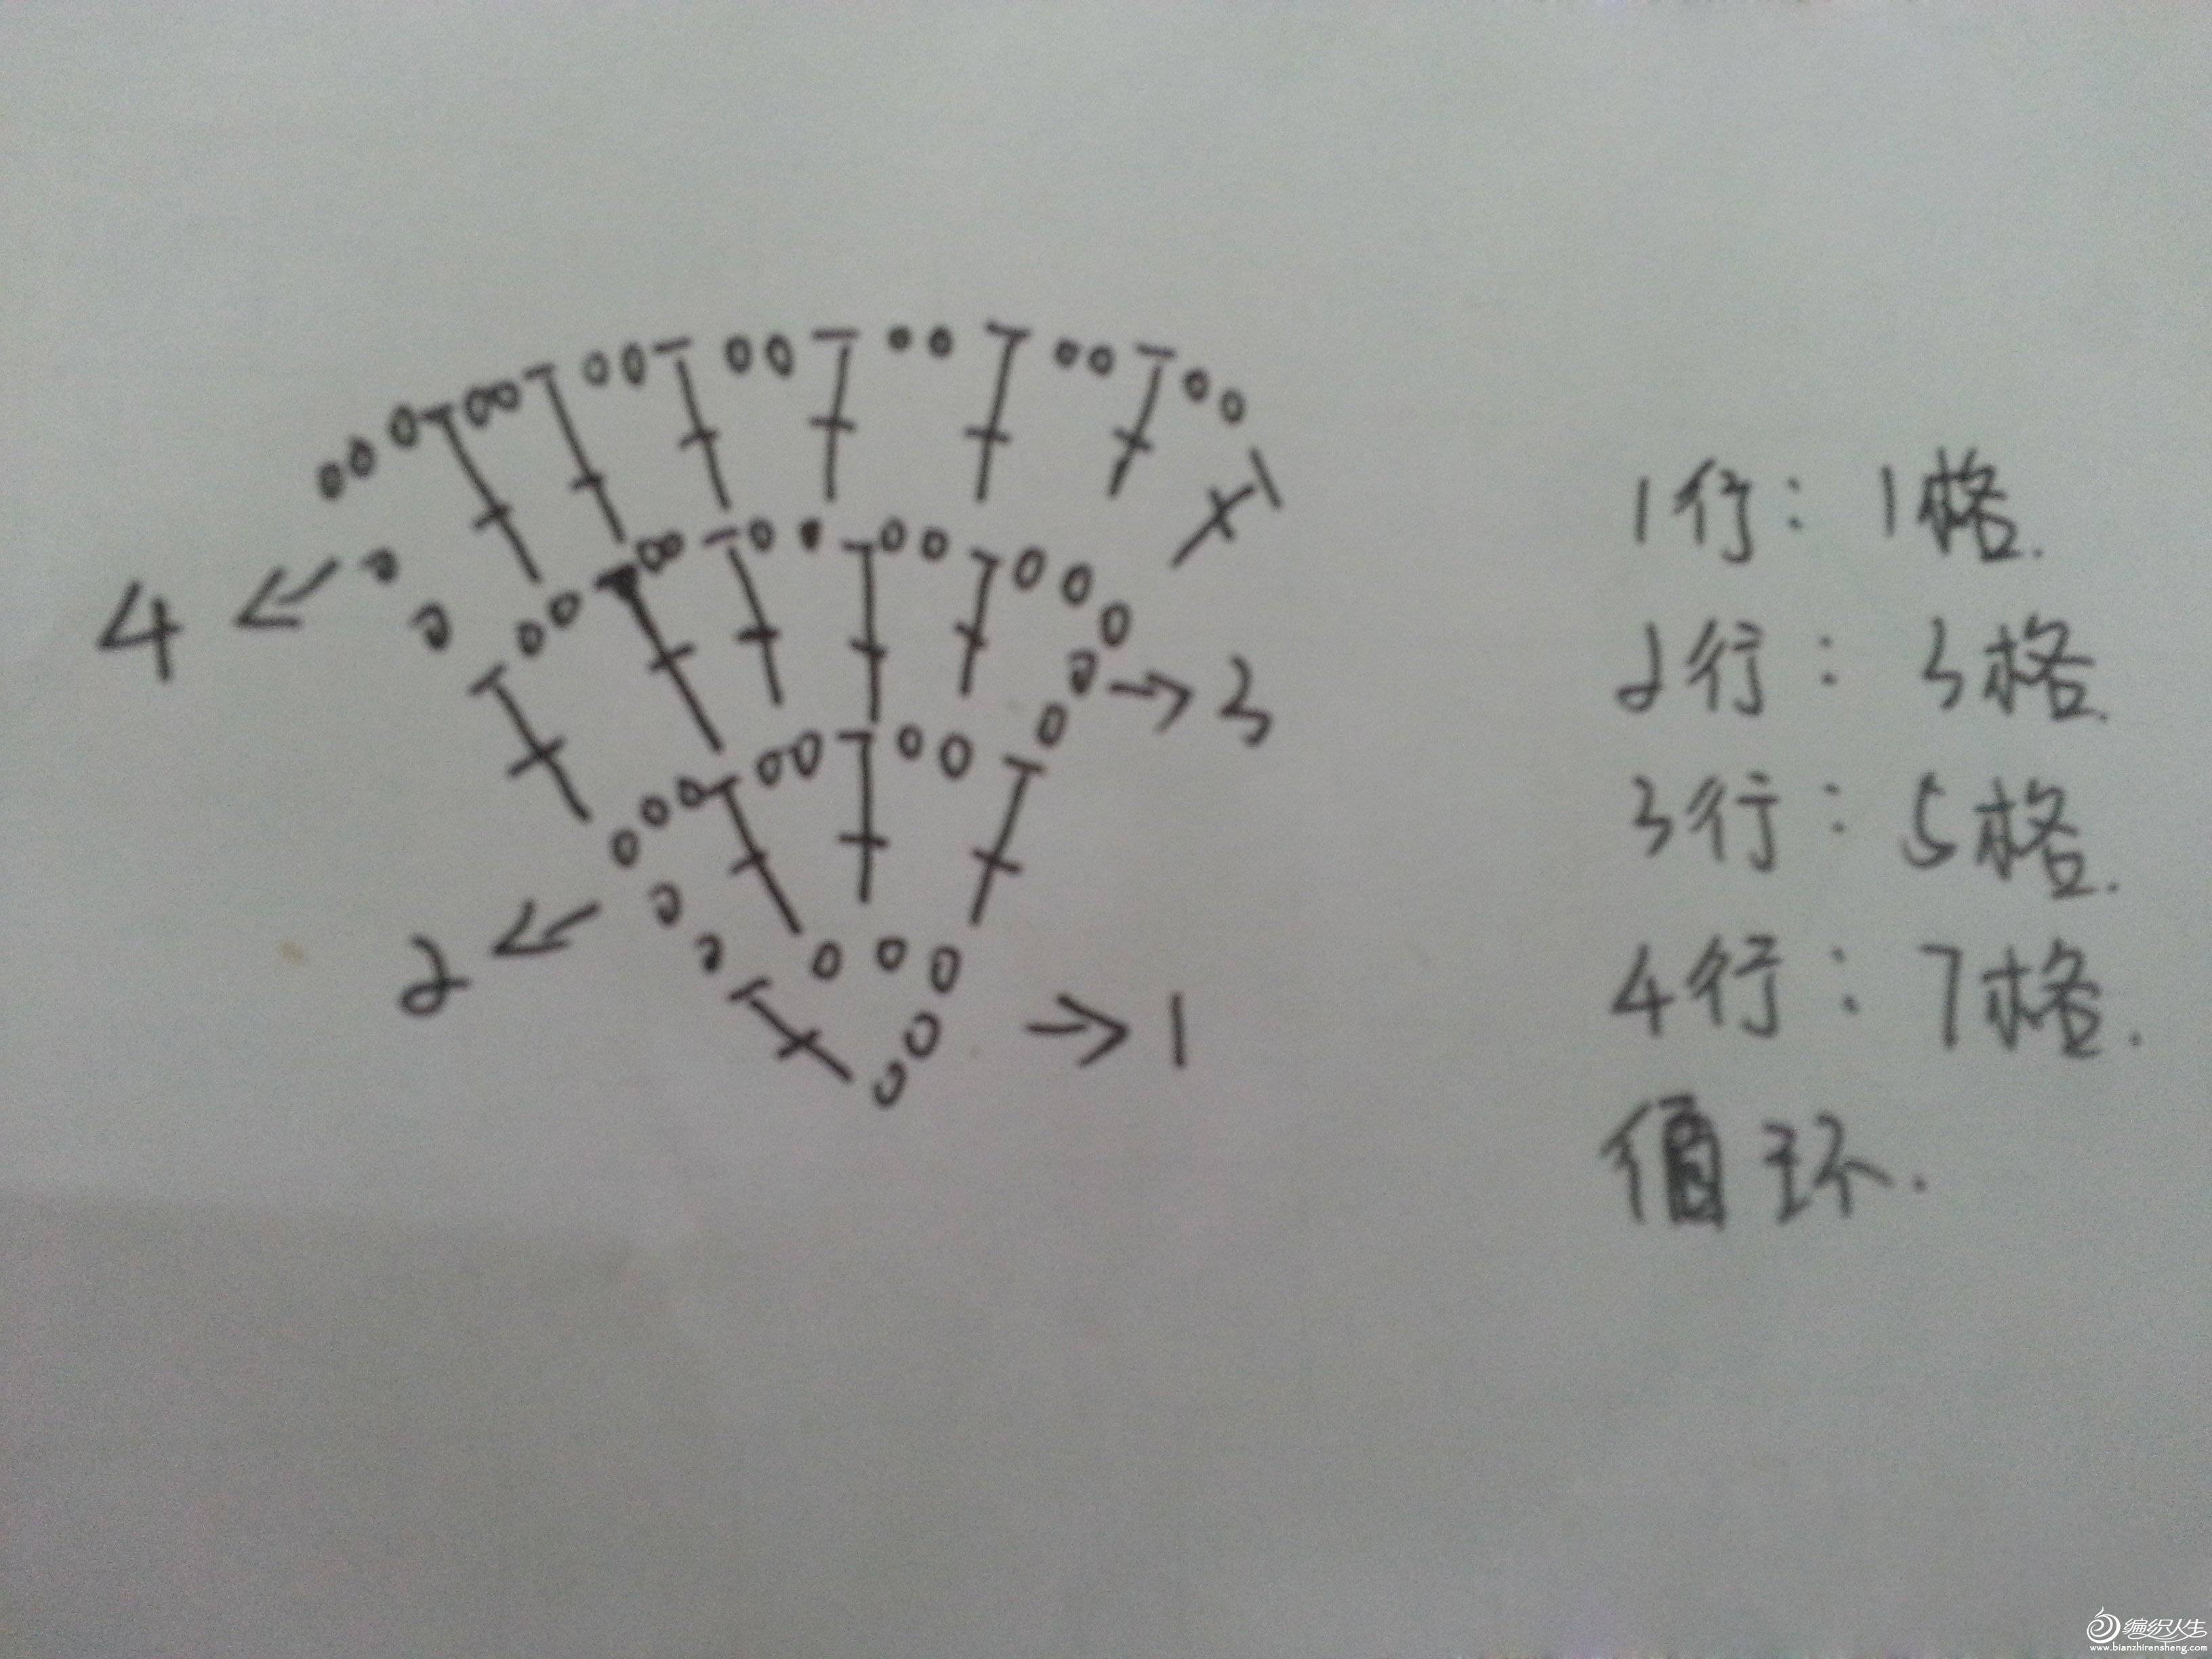 1行：1格.
2行：3格.
3行：5格.
4行：7格.
循环.
4
3
2
1
编织人生
www.bianzhirensheng.com